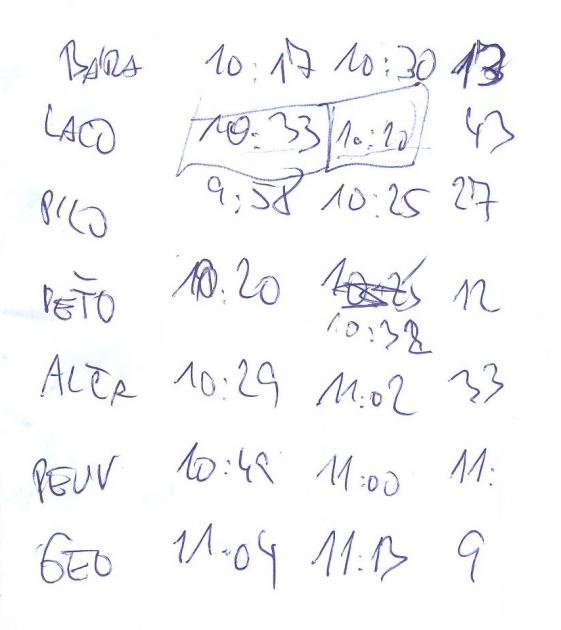 BARA 10:17 10:30 13
LACO 10:33 10:20 43
PICO 9:58 10:25 27
PEŤO 10:20 10:32 12
ALTR 10:29 11:02 33
10:49 11:00 11:
GEO 11:04 11:13 9